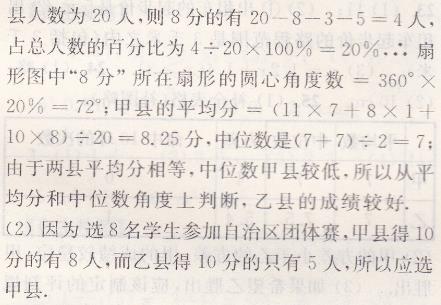 县人数为20人,则8分的有20-8-3-5=4人,
占总人数的百分比为4÷20×100%=20%∴扇
形图中“8分”所在扇形的圆心角度数=360°×
20%=72°;甲县的平均分=(11×7+8×1+
10×8)÷20=8.25分,中位数是(7+7)÷2=7;
由于两县平均分相等,中位数甲县较低,所以从平
均分和中位数角度上判断,乙县的成绩较好.
(2)因为选8名学生参加自治区团体赛,甲县得10
分的有8人,而乙县得10分的只有5人,所以应选
甲县.